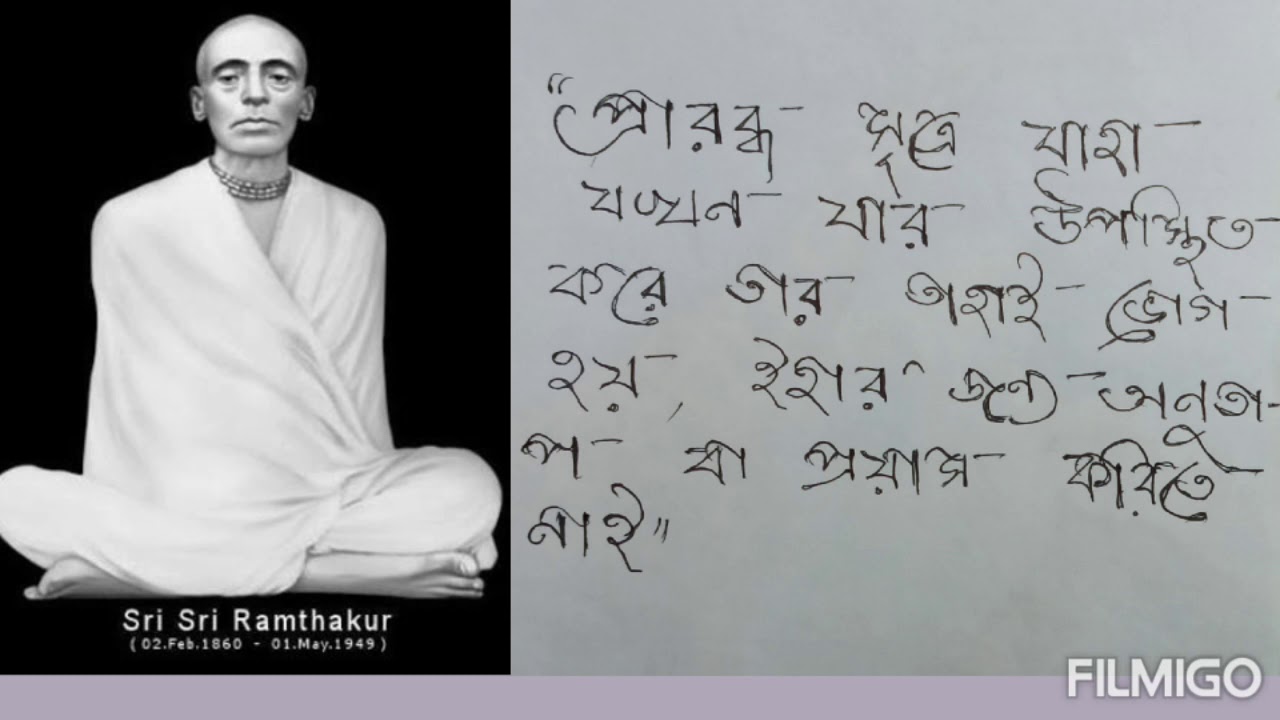 "প্রারব্ধ সূত্রে যাহা
যখন যার উপস্থিত
করে তার তাহাই ভোগ
হয়, ইহার জন্যে অনুতা-
প বা প্রয়াস করিতে
নাই"
Sri Sri Ramthakur
( 02.Feb.1860 - 01.May.1949 )
FILMIGO